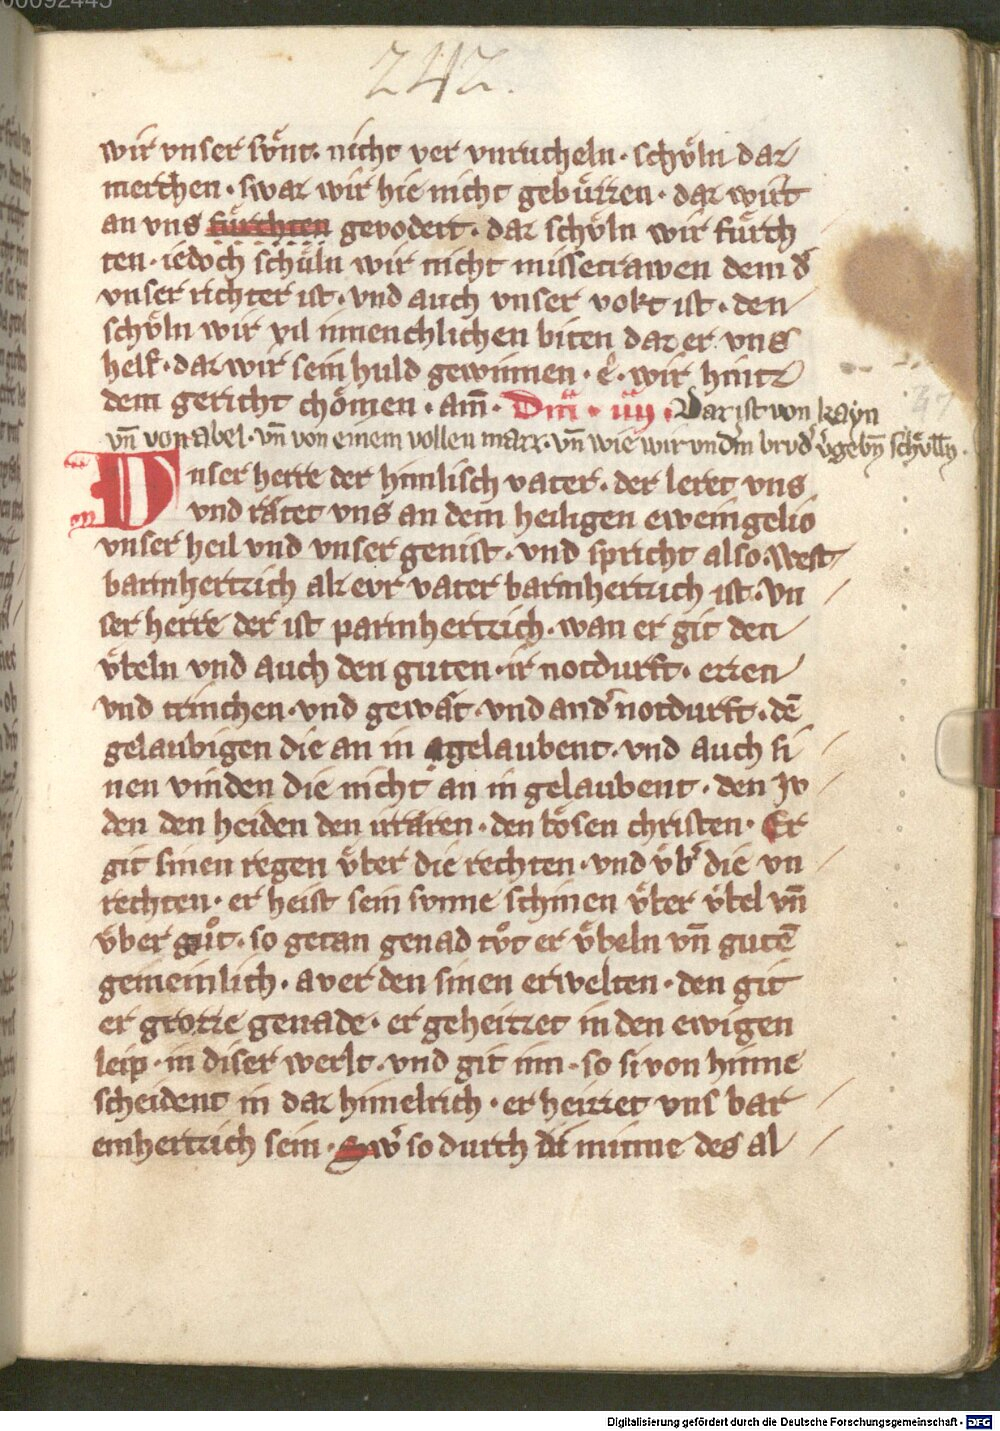 242.
wir vnser sv̈nt. nicht ver vnrucheln · schöln daz
merchen · swaz wir hie nicht gebüzzen · daz wirt
an vns fürchten gevodert · daz schöln wir fürch
ten · iedoch schüln wir nicht missetrawen dem d͛
vnser richter ist · vnd auch vnser vokt ist · den
schöln wir vil innenchlichen biten daz er vns
helf · daz wir sein huld gewinnen · e͛ · wir hintz
dem gericht chömen · am̄ · Dnī̄ca · iiij · Daz ist von kayn
vn̄ von abel · vn̄ von einem vollen mazz · vn̄ wie wir vnd͛m brvd͛ v͛gebn̄ schvlln̄ ·
Vnser herre der himlisch vater · der leret vns
vnd rätet vns an dem heiligen eweingelio
vnser heil vnd vnser genist · vnd spricht also · West
barmhertzich alz evr vater barmhertzich ist · Vn
ser herre der ist parmhertzich · wan er git den
v̈beln vnd auch den guten · ir notdurft · ezzen
vnd trinchen · vnd gewät · vnd and͛ notdurft · dē
gelaubigen die an in gelaubent · vnd auch si
nen vinden die nicht an in gelaubent · den Jv
den den heiden den irrären · den bösen christen · Er
git sinen regen v̈ber die rechten · vnd v̈b͛ die vn
rechten · er heist sein svnne schinen v̈ber v̈bel vn̄
v̈ber guͦt · so getan genad tvͦt er v̈beln vn̄ gutē
gemeinlich · aver den sinen erwelten · den git
er grozze genade · er geheizzet in den ewigen
leip · in diser werlt · vnd git inn · so si von hinne
scheident in daz himelrich · er heizzet vns bar
emhertzich sein · Sw͛ so durch di minne des al
Digitalisierung gefördert durch die Deutsche Forschungsgemeinschaft - DFG